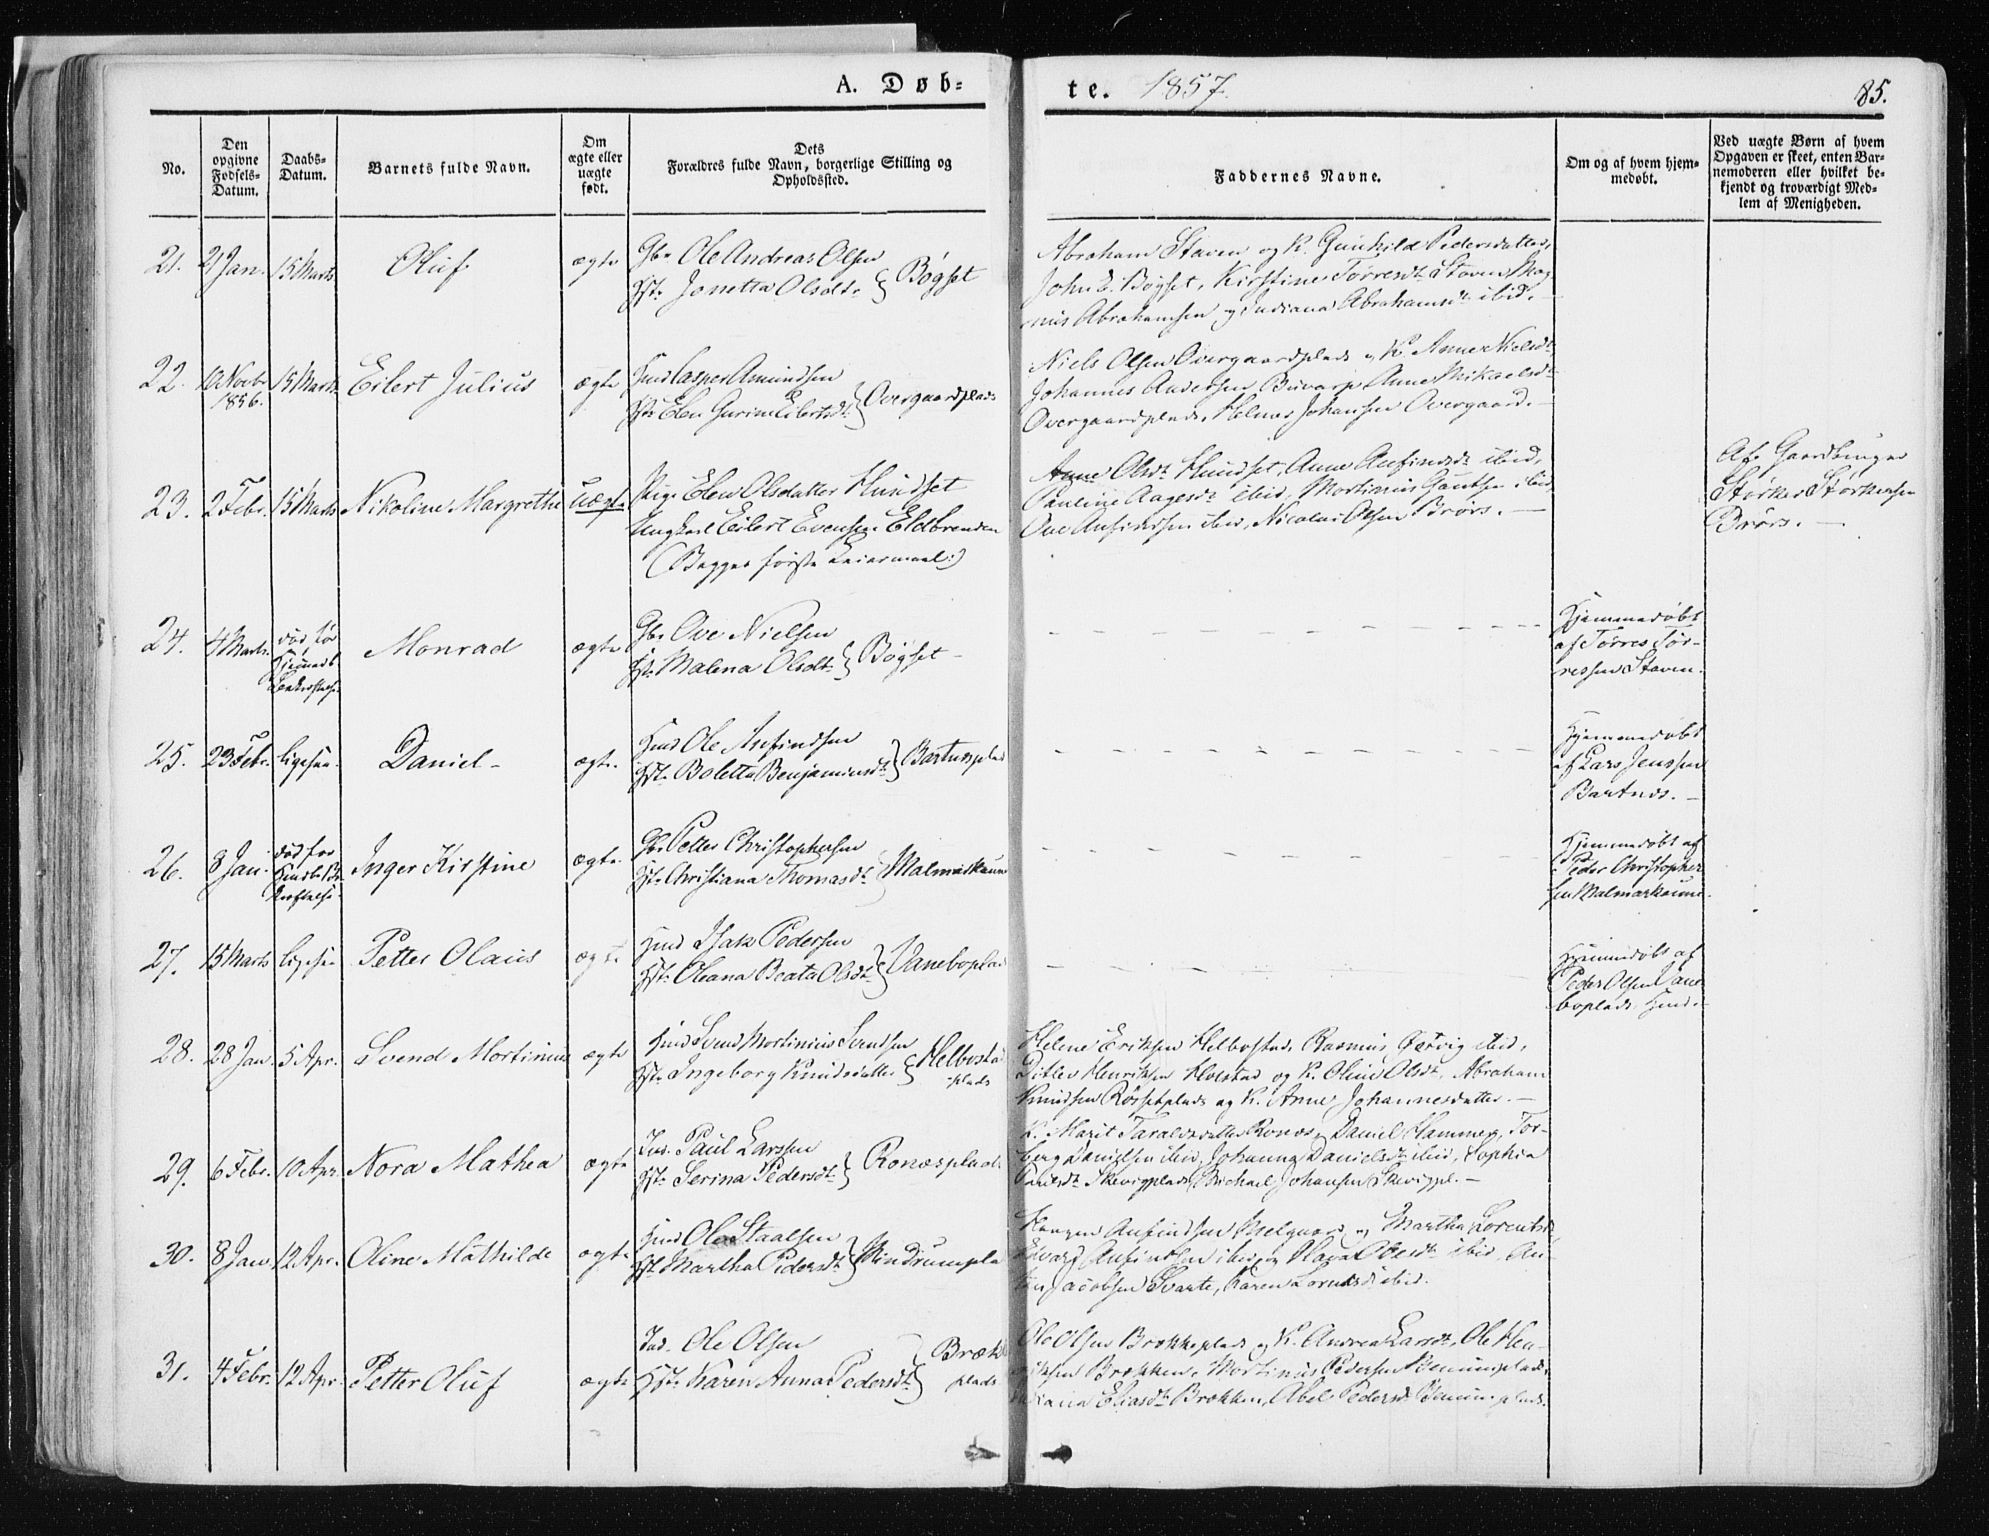 A. Døb-
te. 1857.
85.
No.
Den opgivne Fødsels-Datum.
Daabs-Datum.
Barnets fulde Navn.
Om ægte eller uægte født.
Dets Forældres fulde Navn, borgerlige Stilling og Opholdssted.
Faddernes Navne.
Om og af hvem hjem-medøbt.
Ved uægte Børn af hvem Opgaven er skeet, enten Bar-nemoderen eller hvilket be-kjendt og troværdigt Med-lem af Menigheden.
21. 2 Jan. 15 Marts Oluf ægte Gbr Ole Andreas Olsen
Hst: Jonetta Olsdt: } Bøgset
Abraham Staven og K. Gunhild Pedersdatter,
John E. Bøgset, Kirstine Torresdt Staven Mag
nus Abrahamsen og Indiana Abrahamsdt ibid. —
22. 10 Novbr 1856. 15 Marts Eilert Julius ægte Huusd Casper Amundsen
Hst: Elen Gurine Eilertsdt } Overgaardplads
Niels Olsen Overgaardplads og K. Anne Nielsdt,
Johannes Andersen Buvarp, Anne Mikaelsdt
Overgaardplads, Helmer Johansen Overgaard. —
23. 2 Febr. 15 Marts Nikoline Margrethe Uægte Pige Elen Olsdatter Hundset
Ungkarl Eilert Evensen Eldbrenden
(Begges første Leiermaal.)
Olsdt Hundset, Anne Anfindsdt ibid,
Pauline Aagesdt ibid, Mortinus Gautsen ibid,
Ove Anfindsen ibid, Nicolai Olsen Brørs. —
Af Gaardbruger
Størker Størkersen
Brørs. —
24. 4 Marts død før Monrad ægte Gbr Ove Nielsen
Hst: Malena Olsdt } Bøgset —
Hjemmedøbt
af Torres Tor-
ressen Staven.
25. 23 Febr. ligesaa. Daniel — ægte. Huusd Ole Anfindsen
Hst: Boletta Benjaminsdt } Bartnesplad
Hjemmedøbt
af Lars Jenssen
Bartnes. —
26. 8 Jan. død for Inger Kirstine ægte Gbr Petter Christophersen
Hst: Christiana Thomasdt } Malmarkaune
Hjemmedøbt af
Peder Christopher
sen Malmarkaune.
27. 15 Marts ligesaa Petter Olaus ægte Huusd Isak Pedersen
Hst: Oleana Beata Olsdt } Vaneboplad
Hjemmedøbt af
Peder Olsen Vane
boplads Huusd.
28. 28 Jan 5 Apr. Svend Mortinius ægte Huusd Svend Mortinius Svendsen
Hst: Ingeborg Knudsdatter } Helbostad
-plads
Helene Eriksen Helbostad, Rasmus ibid,
Ditlev Henriksen Holstad og K. Oline Olsdt, Abraham
Knudsen Røssetplads og K. Anne Johannesdatter. —
29. 6 Febr. 10 Apr. Nora Mathea ægte Ind. Paul Larssen
Hst: Serina Pedersdt } Ronæsplads
K. Marit Taraldsdatter Ronæs, Daniel Hammer, Tor-
berg Danielsen ibid, Johanna Danielsdt ibid, Sophia
Paulsdt Skevigplads, Michael Johansen Skevigpl. —
30. 8 Jan 12 Apr. Oline Mathilde ægte Huusd Ole Staalsen
Hst: Martha Pedersdt } Mindrumpla
Haagen Anfindsen og Martha Lorentsdt
Edvard Anfindsen ibid og Olsdt ibid, An
ton Jacobsen Svarte, Karen Lorntsdt ibid.
31. 4 Febr. 12 Apr. Petter Oluf ægte Ind. Ole Olsen
Hst: Karen Anna Pedersdt } Bræk
plads
Ole Olsen Brækkeplads og K. Andrea Larsdt, Ole Hen-
riksen Brækken, Mortinus Pedersen
Eliasdt Brækken, Abel Pedersdt plads.